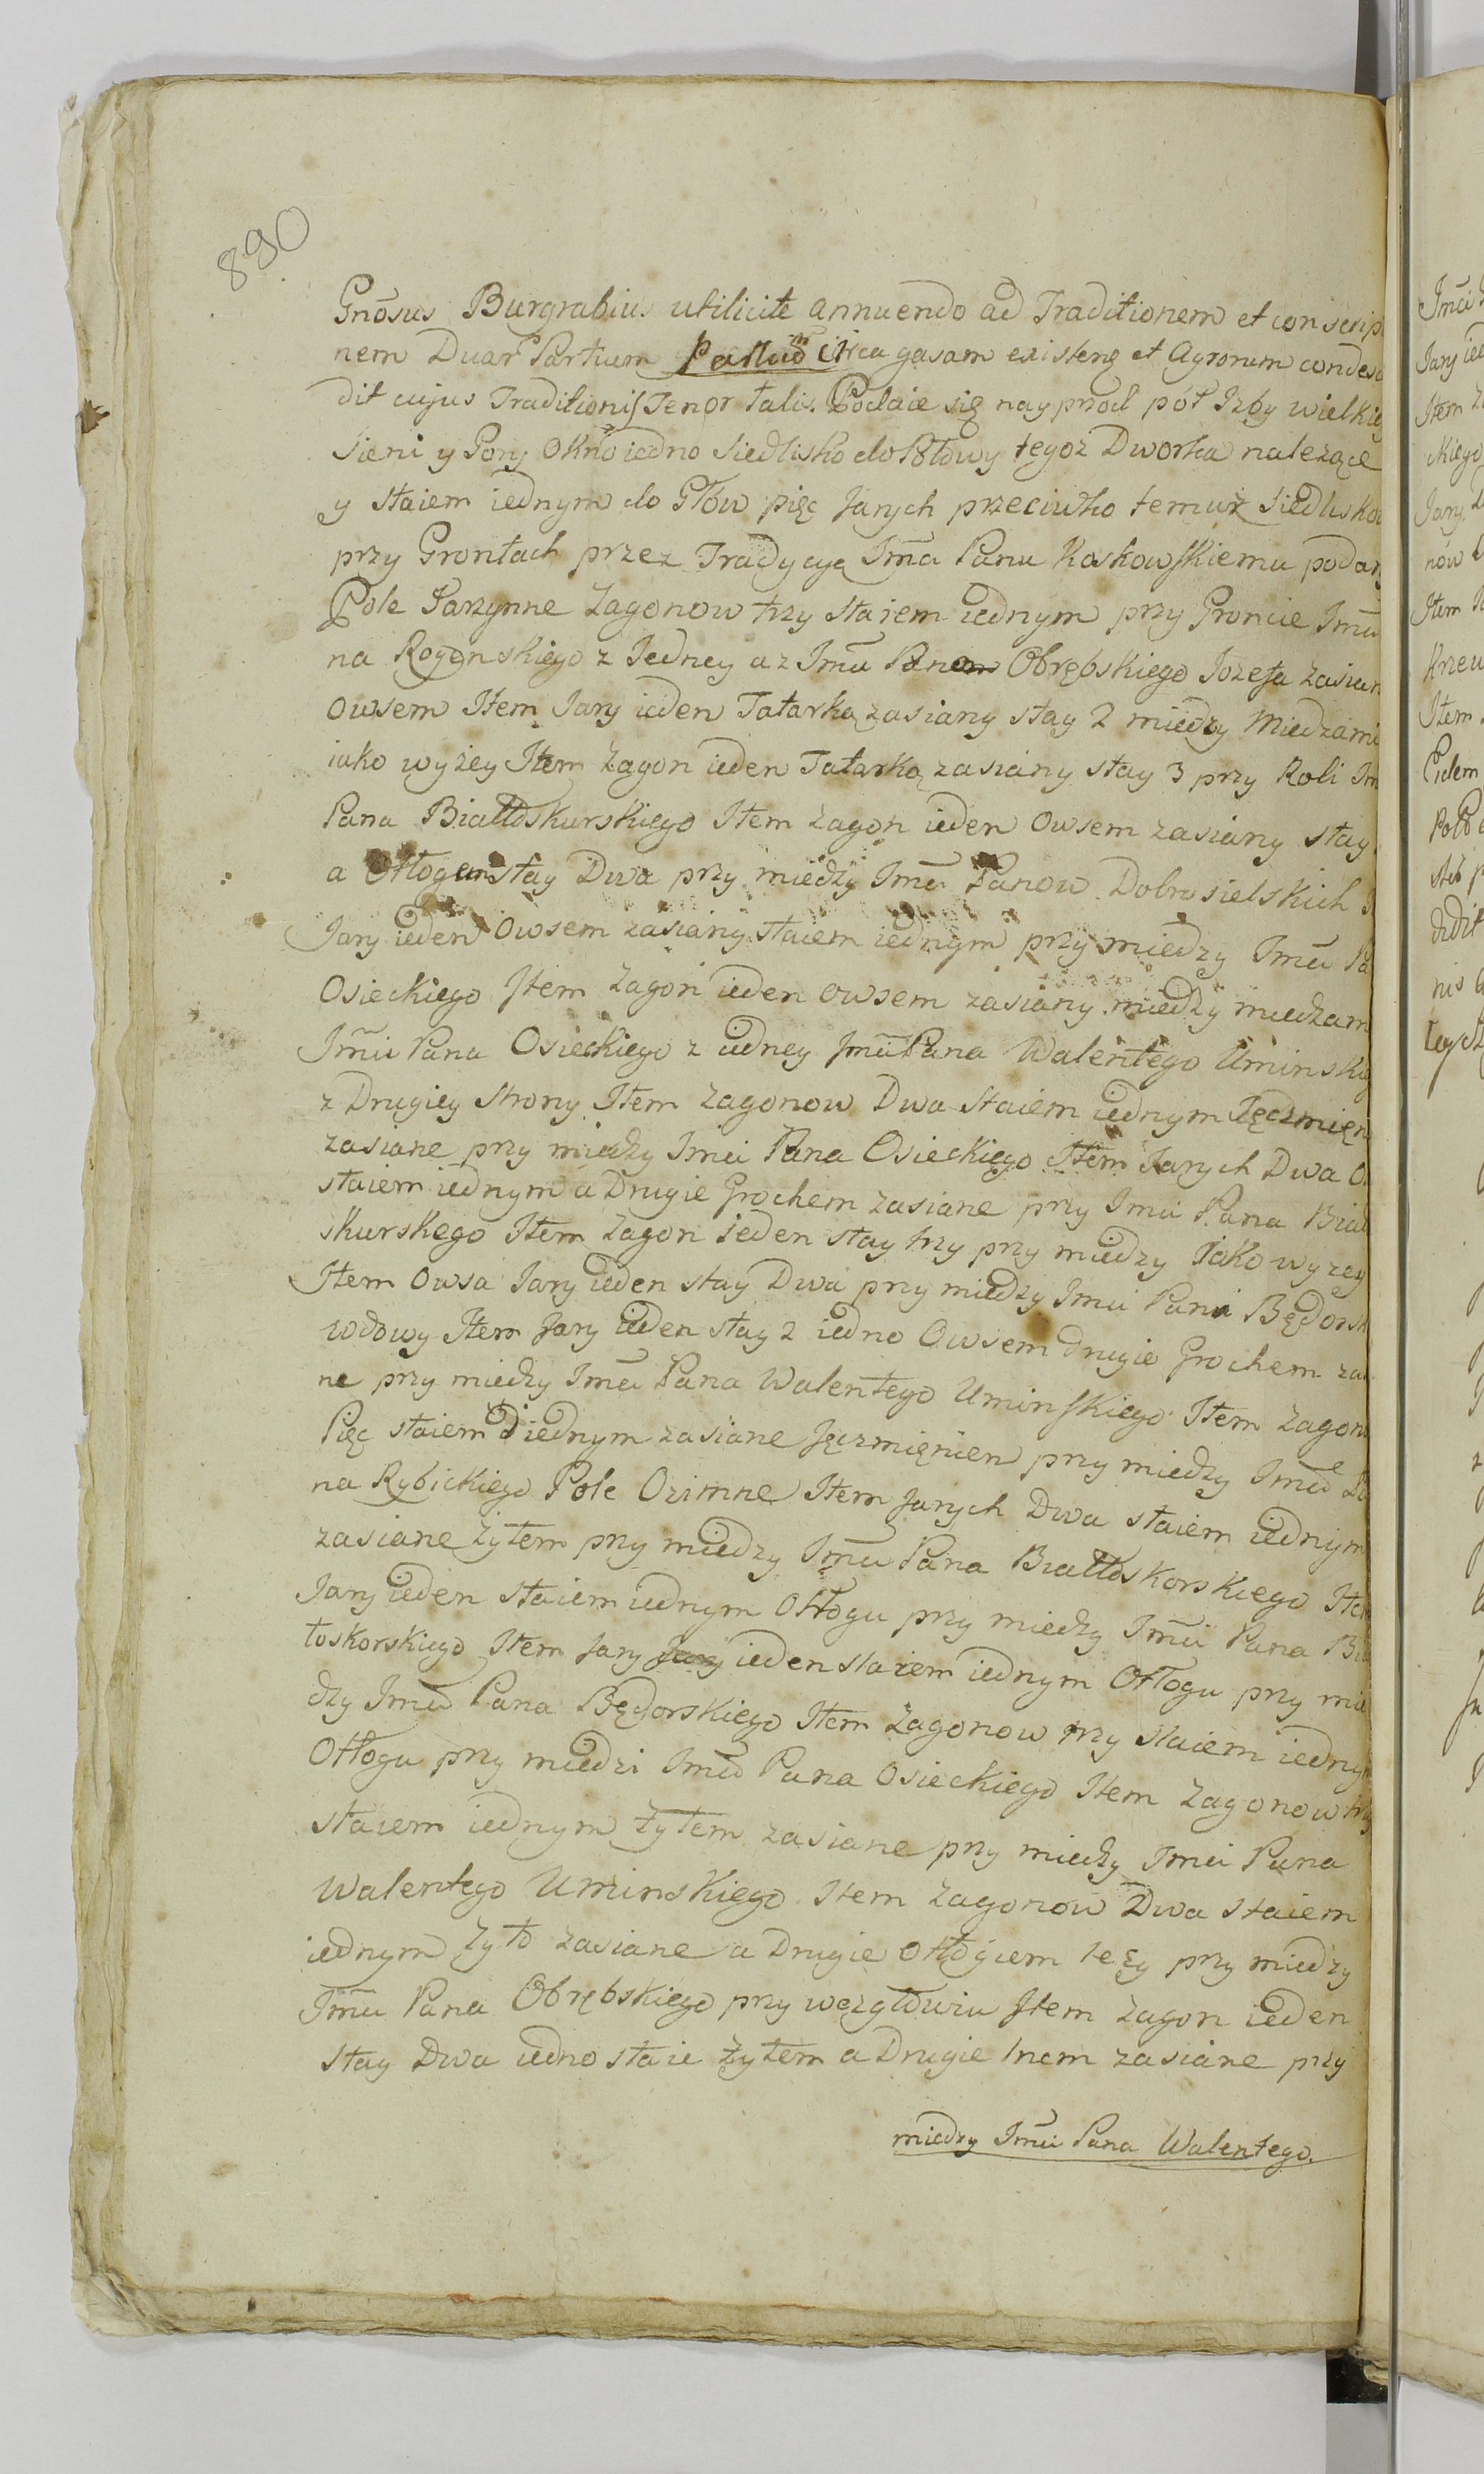 890
Gnōsus Burgrabius utilicite annuendo ad Traditionem et conscrip
nem Duar Partium circa gasam existen et Agrorum condes
dit cujus Traditionis Tenor talis. Podaie się nayprzod poł Izby wielkiey
Sieni y Gory Okno iedno Siedlisko do Połowy tegoz Dworka nalezące
y staiem iednym do Głów pięc Jarych przeciwko temuż Siedlisko
przy Grontach przez Tradycyą Jmci Panu Koskowskiemu podan
Pole Jarzynne Zagonow trzy stajem iednym przy Groncie Jmci
na Rogonskiego z Jedney a z Jmci Pana Obrębskiego Jozefa zasian
Owsem Item Jary ieden Tatarką zasiany stay 2 miedzy Miedzami
iako wyżey Item Zagon ieden Tatarką zasiany stay 3 przy Roli Jm
Pana Białłoskurskiego Item Zagon ieden Owsem zasiany stay
a Otłogem stay Dwa przy miedzy Jmci Panow Dobrosielskich
Jary ieden Owsem zasiany staiem iednym przy miedzy Jmci Pa
Osieckiego Item Zagon ieden owsem zasiany miedzy miedzam
Jmci Pana Osieckiego z iedney Jmci Pana Walentego Uminski
z Drugiey strony Item Zagonow Dwa staiem iednym Jęczmięn
zasiane przy miedzy Jmci Pana Osieckiego Item Jarych Dwa O
staiem iednym a Drugie Grochem zasiane przy Jmci Pana Biał
skurskego Item Zagon ieden stay trzy przy miedzy Jako wyzey
Item Owsa Jary ieden stay Dwa przy miedzy Jmci Pani Będorsk
wdowy Item Jary ieden stay 2 iedno Owsem drugie Grochem za
ne przy miedzy Jmci Pana Walentego Uminskiego Item Zagon
Pięc staiem iednym zasiane Jęczmięniem przy miedzy Jmci Pa
na Rybickiego Pole Ozimne Item Jarych Dwa staiem iednym
zasiane Żytem przy miedzy Jmci Pana Białłoskorskiego Ite
Jary ieden staiem iednym Otłogu przy miedzy Jmci Pana Bia
łoskorskiego Item Jary Jary ieden staiem iednym Otłogu przy mie
dzy Jmci Pana Będorskiego Item Zagonow trzy staiem iednym
Otłogu przy miedzi Jmci Pana Osieckiego Item Zagonow trzy
staiem iednym Żytem zasiane przy miedzy Jmci Pana
Walentego Uminskiego Item Zagonow Dwa staiem
iednym Zyto zasiane a Drugie otłogiem lezy przy miedzy
Jmci Pana Obrębskiego przy wezgłowiu Item Zagon ieden
stay Dwa iedno staie Żytem a Drugie lnem zasiane przy
miedzy Jmci Pana Walentego.